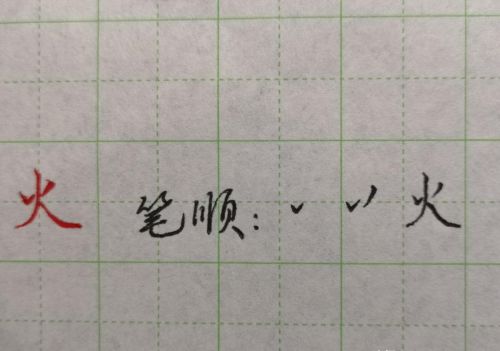 火 笔顺: 丶 丷 火